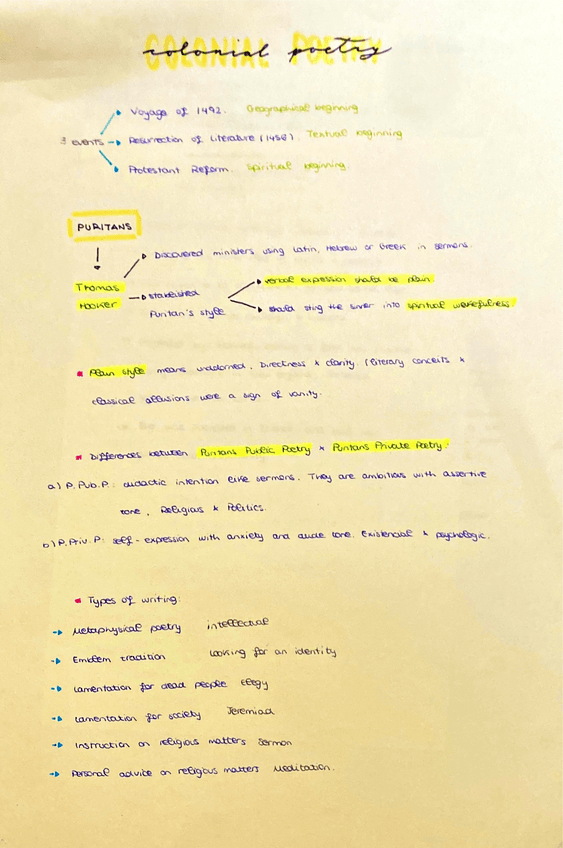 COLONIAL POETRY
colonial poetry
Voyage of 1492. Geographical beginning
3 EVENTS Resurrection of Literature (1458). Textual beginning
Protestant Reform. Spiritual beginning.
PURITANS
Discovered ministers using Latin, Hebrew or Greek in sermons.
Thomas Hooker
Stablished Puritan's style
verbal expession should be plain.
should sting the sinner into spiritual wakefulness.
Plain style means unadorned. Directness & clarity. (literary conceits &
classical allusions were a sign of vanity.
Differences between Puritans Public Poetry & Puritans Private Poetry:
a) P. Pub. P.: didactic intention like sermons. They are ambitious with assertive
tone. Religious & Politics.
b) P. Priv. P: self-expression with anxiety and tone. Existencial & psychologic.
Types of writing:
Metaphysical poetry intellectual
Emblem tradition looking for an identity
Lamentation for dead people Elegy
Lamentation for society Jeremiad
Instruction on religious matters Sermon
Personal advice on religious matters Meditation.